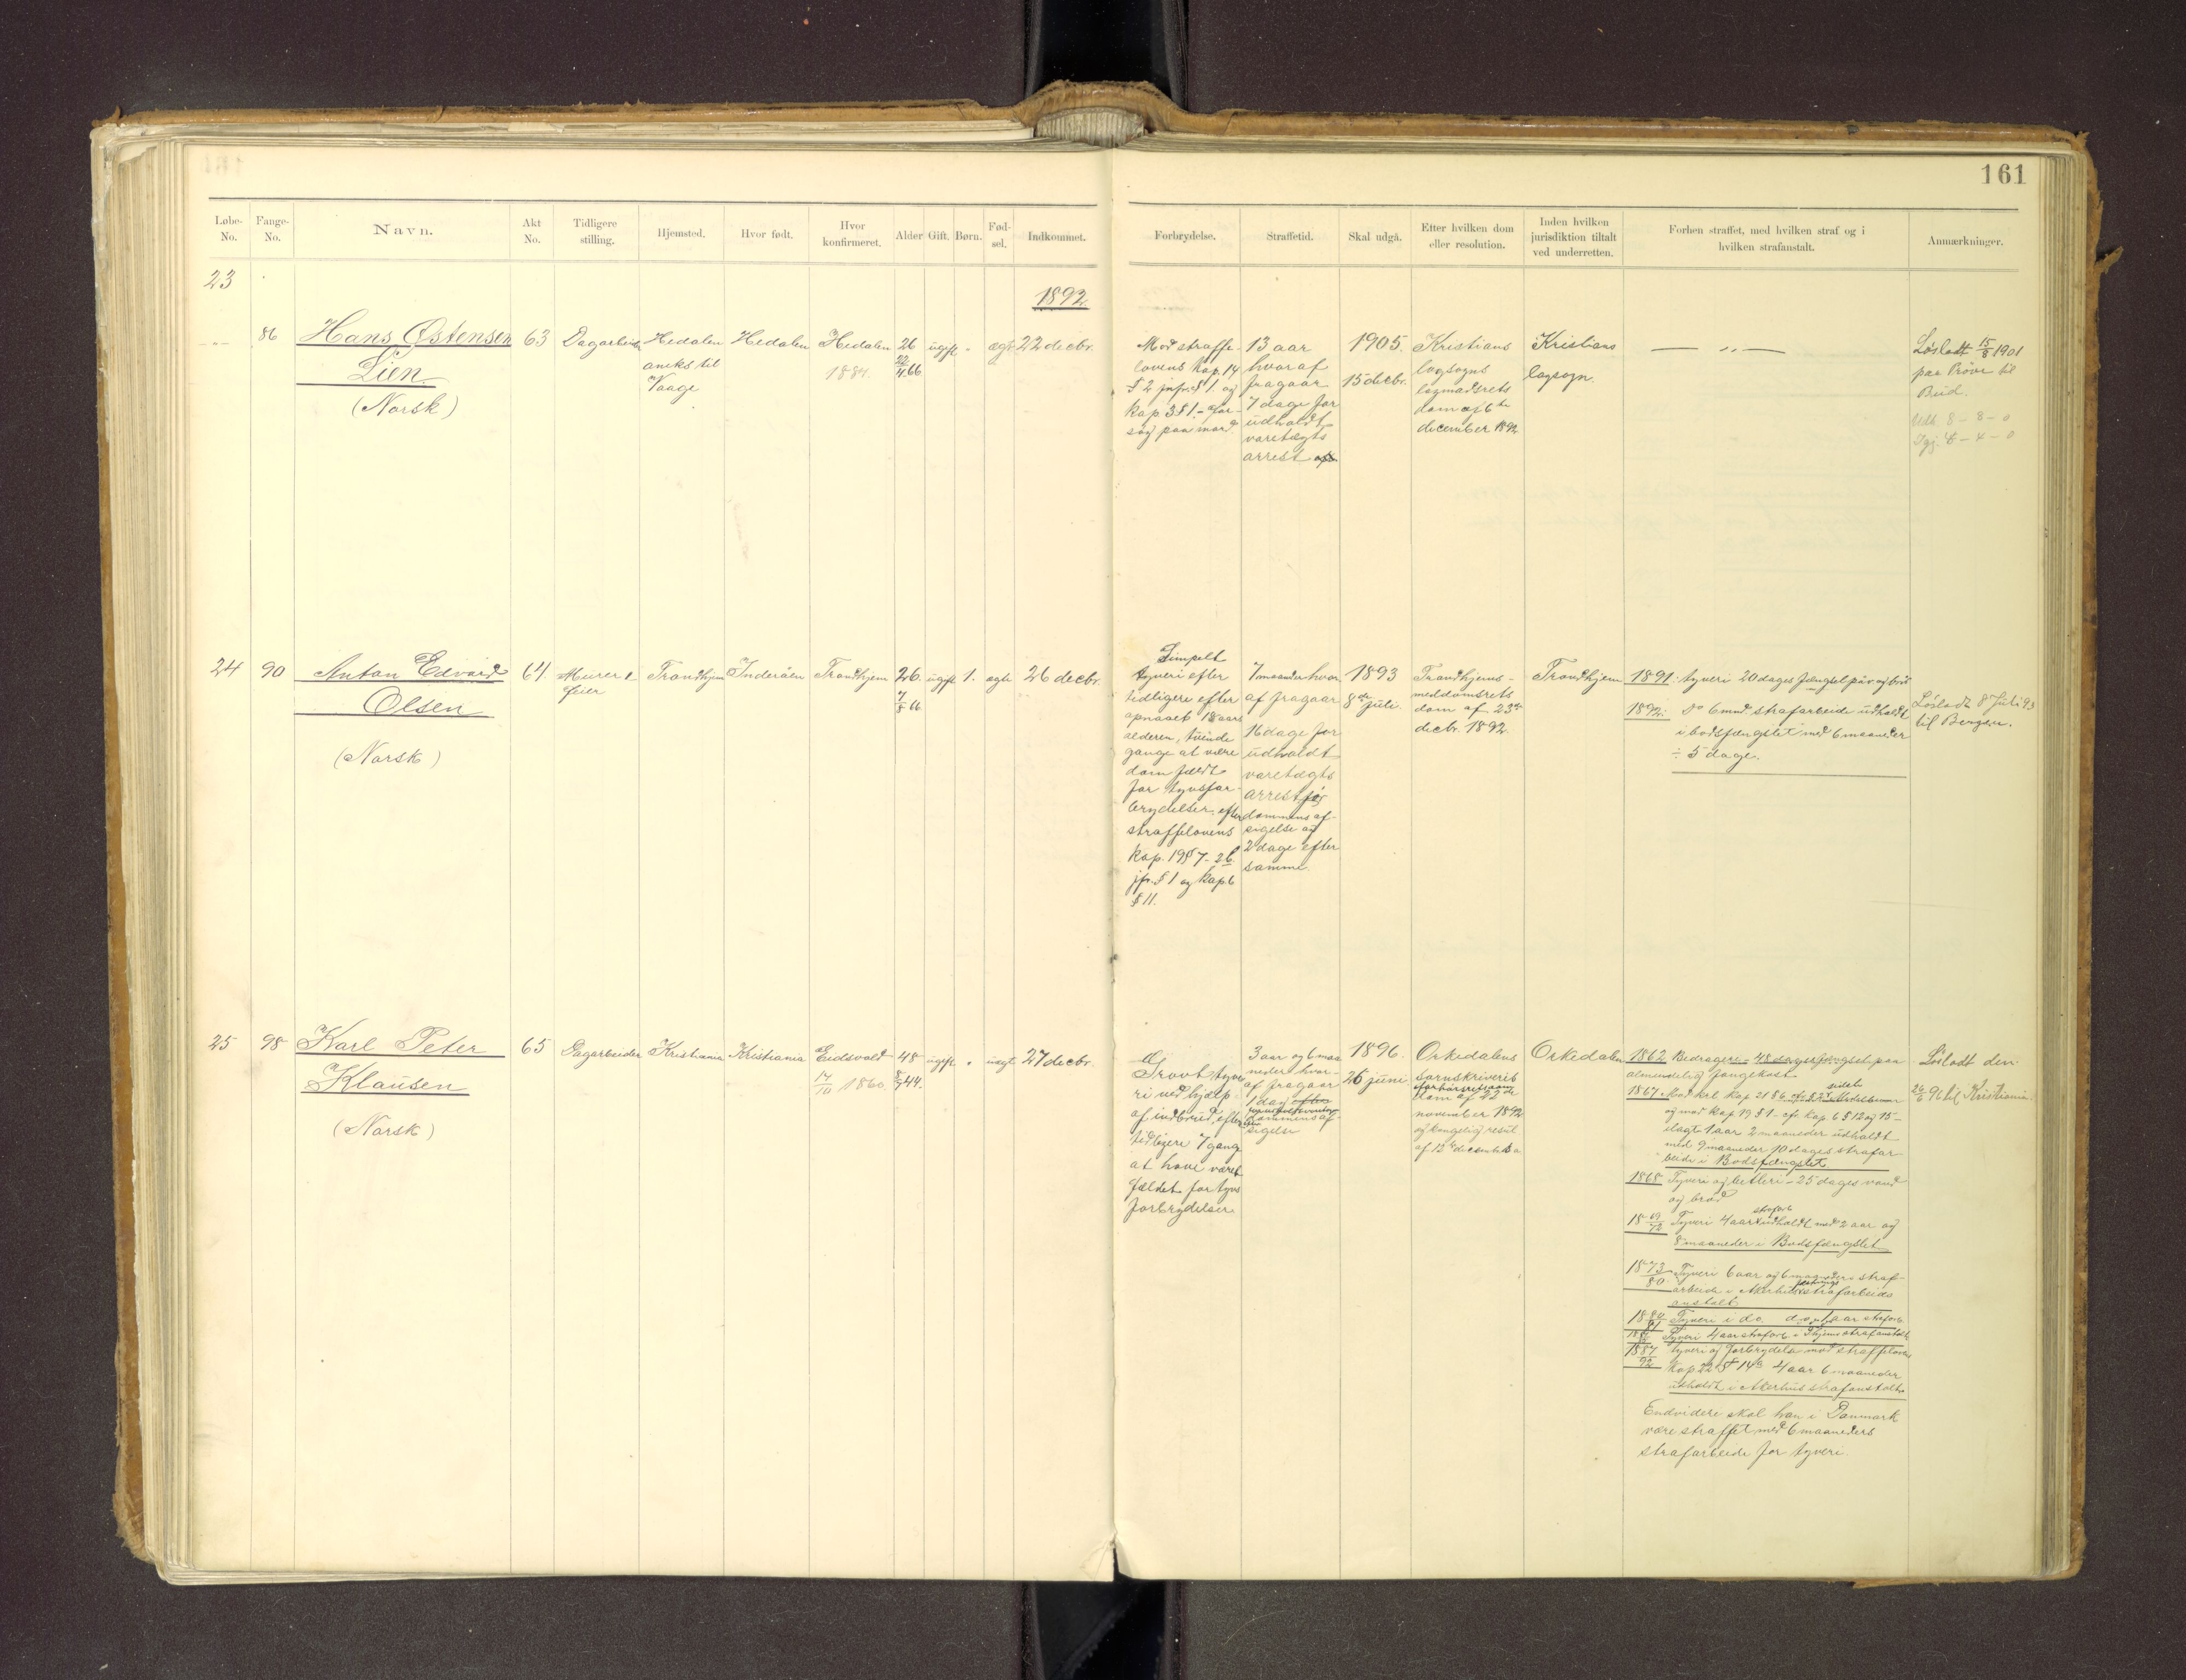 161
Løbe-No.
Fange-No.
Navn.
Akt No.
Tidligere stilling.
Hjemsted.
Hvor født.
Hvor konfirmeret.
Alder
Gift.
Børn.
Fød-sel.
Indkommet.
Forbrydelse.
Straffetid.
Skal udgå.
Efter hvilken dom eller resolution.
Inden hvilken jurisdiktion tiltalt ved underretten.
Forhen straffet, med hvilken straf og i hvilken strafanstalt.
Anmærkninger.
23
1892.
86
Hans Østensen
Lien
(Norsk)
63
Dagarbeider
Hedalen
aneks til
Vaage
Hedalen
Hedalen
1884.
26
22/4 66
ugift
"
ægte
22 decbr.
Mod straffe-
lovens Kap. 14
§ 2 jnfr. § 1. og
Kap 3 § 1. - For-
søg paa mord
13 aar
hvoraf
fragaar
7 dage for
udholdt
varetægts
arrest
1905.
15 decbr.
Kristians
lagsogns
lagmandsrets
dom af 6te
december 1892
Kristians
lagsogn.
— „ —
Løsladt 15/8 1901
paa Prøve til
Bud.
Udh. 8 - 8 - 0
Igj. 4 - 4 - 0
24
90
Anton Edvard
Olsen
(Norsk)
64.
Murer &
feier
Trondhjem
Inderøen
Trondhjem
26.
7/8 66
ugift
1.
ægte
26 decbr.
Simpelt
tyveri efter
tidligere efter
opnaaet 18 aars
alderen, tvende
gange at være
domfældt
for tyvsfor-
brydelser, efter
straffelovens
Kap. 19 § 7 - 2 b.
jfr. § 1 og Kap. 6
§ 11.
7 maander hvor
af fragaar
16 dage for
udholdt
varetægts
arrest før
dommens af-
sigelse og
2 dage efter
samme.
1893
8de juli.
Trondhjems-
meddomsrets
dom af 23de
decbr. 1892.
Trondhjem
1891: tyveri 20 dages fængsel på v og brød
1892: Do 6 mnd. strafarbeide udholdt
i bodsfængslet med 6 maaneder
÷ 5 dage.
Løsladt 8 Juli 93
til Bergen.
25
98
Karl Peter
Klausen
(Norsk)
65
Dagarbeider
Kristiania
Kristiania
Eidsvold
14/10 1860.
48
8/7 44.
ugift
"
uægt
27 decbr.
Grovt tyve
ri ved hjælp
af indbrud, efter
tidligere 7 gang
at have været
fældet for tyvs
forbrydelser.
3 aar og 6 maa
neder hvor-
af fragaar
1 dag
dommens af-
sigelse
1896.
26 juni
Orkedalens
sorenskriveris
forhørsrets
dom af 22de
november 1892
og kongelig resol.
af 13de december s a
Orkedalen
1862 Bedrageri - 48 dages fængsel paa
almindelig fangekost
1867. Mod krl. Kap 21 § 6
og mod Kap 19 § 1 - cfr. Kap. 6 § 12 og 15 -
ilagt 1 aar 2 maaneder udholdt
med 9 maaneder 10 dages strafar
beide i Bodsfængslet
1868 Tyveri og betleri - 25 dages vand
og brød
1869/72 Tyveri 4 aar strafarb udholdt med 2 aar og
8 maaneder i Bodsfængslet
1873/80 Tyveri 6 aar og 6 maaneders straf-
arbeide i Akershus fæstnings strafarbeids
anstalt
1880/81 Tyveri i do. aar strafarb.
Tyveri 4 aar strafarb. i Thjems strafanstalt
1887/92 tyveri og forbrydelse mod straffeloven
Kap 22 § 14 4 aar 6 maaneder
udholdt i Akerhus strafanstalt.
Endvidere skal han i Danmark
være straffet med 6 maaneders
strafarbeide for tyveri.
Løsladt den
26/6 96 til Kristiania.